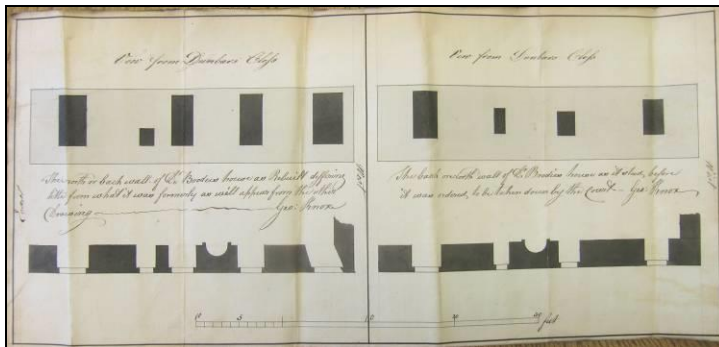 View from Dunbars Closs
The north or back wall of Ls Brodies house as Rebuilt differing
little from what it was formerly as will appear from the other
Drawing Geo: Knox
East
West
View from Dunbars Closs
The back or north wall of Ls Brodies house as it stood before
it was ordered to be taken down by the Court Geo: Knox
West
0 5 10 feet